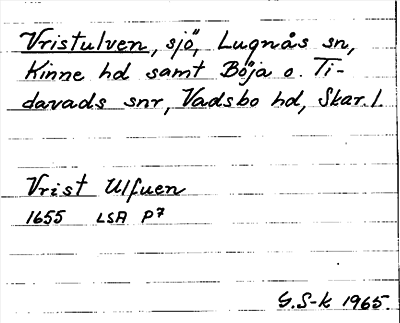 Vristulven, sjö, Lugnås sn,
Kinne hd samt Böja o. Ti-
davads snr, Vadsbo hd, Skar. l.
Vrist Ulfuen
1655 LSA P7
G. S-k 1965.